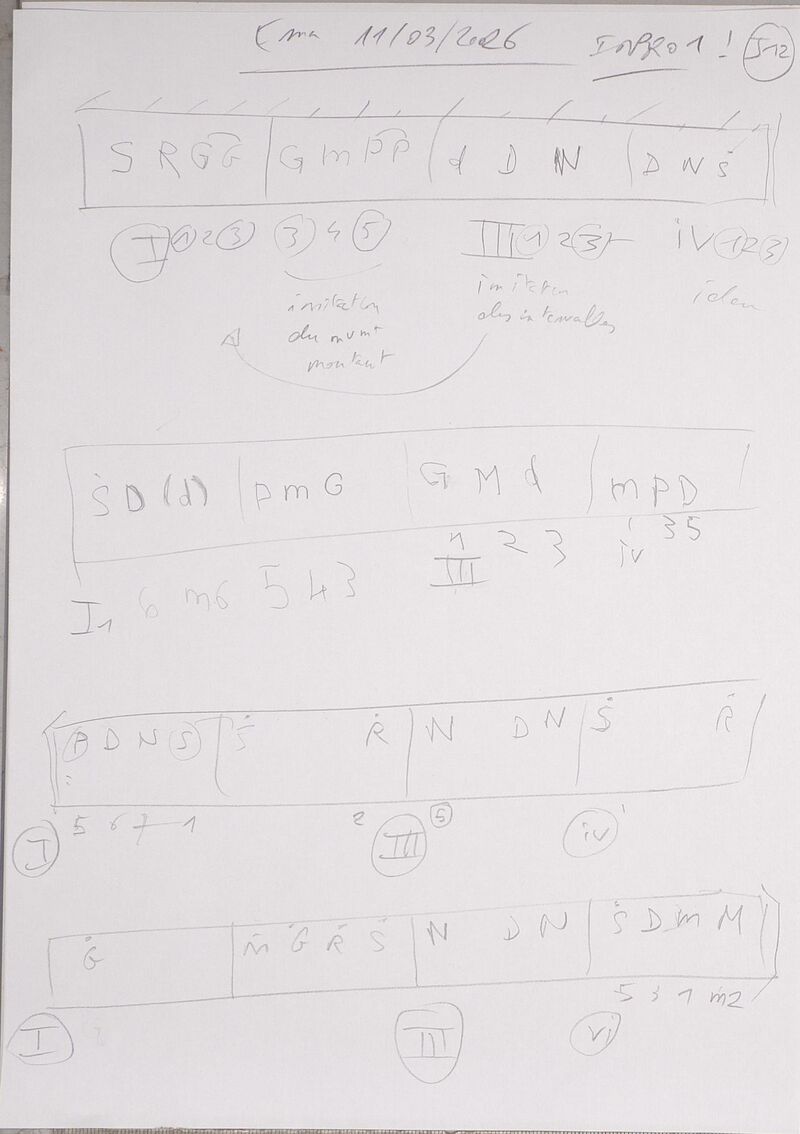 11/03/2026 IMPRO 1 ! J12
S R G G | G m P P | d D N | D N Ṡ
I 1 2 3 3 4 5 III 1 2 3 iv 1 2 3
imitation du mvmt montant
imitation des intervalles
idem
Ṡ D (d) | P m G | G M d | m P D
I 1 6 m6 5 4 3 III 1 2 3 iv 1 3 5
P D N S | Ṡ Ṙ | N D N | Ṡ Ṙ
I 5 6 7 1 2 III 5 iv 1
Ġ | ṁ Ġ Ṙ Ṡ | N D N | Ṡ D m M
5 3 1 m2
I III vi